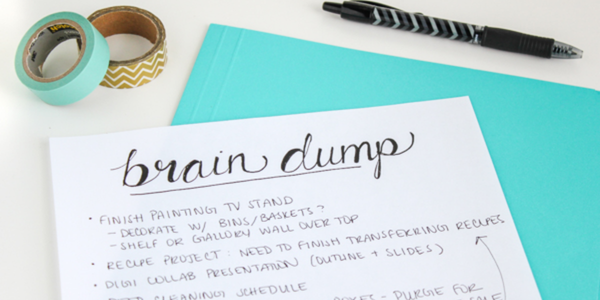 brain dump
• FINISH PAINTING TV STAND
- DECORATE W/ BINS/BASKETS?
- SHELF OR GALLORY WALL OVER TOP
• RECIPE PROJECT: NEED TO FINISH TRANSFERRING RECIPES
• DIGI COLLAB PRESENTATION (OUTLINE + SLIDES)
CLEANING SCHEDULE
- PURGE FOR